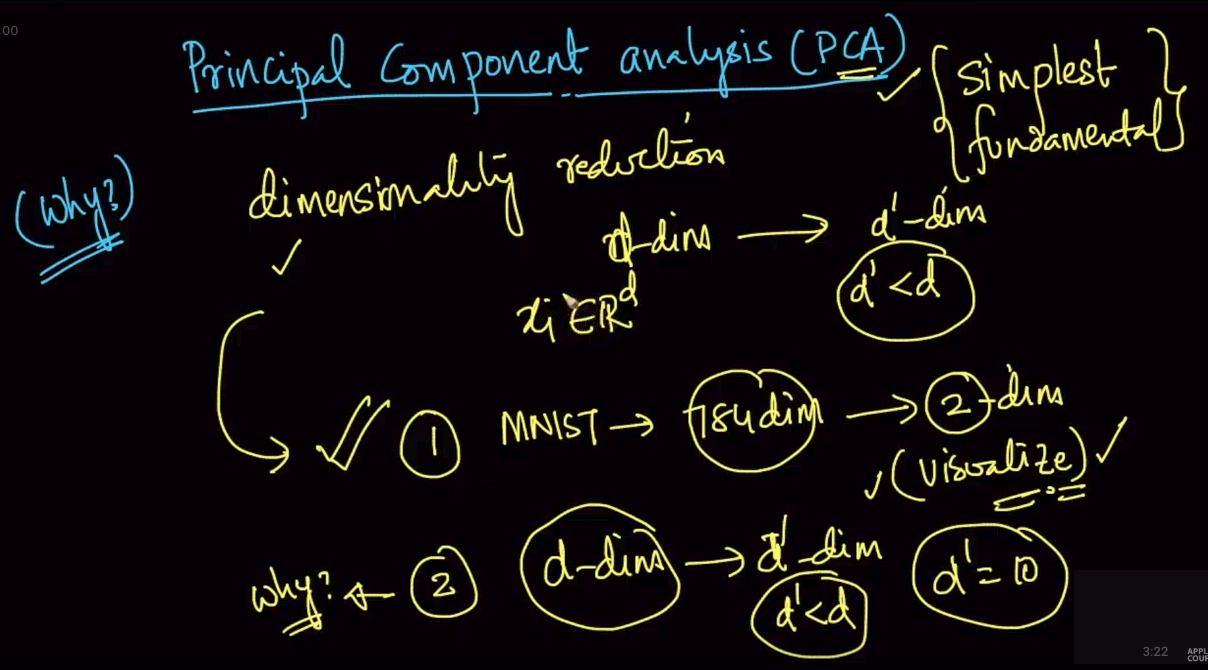 .00
Principal Component analysis (PCA)
✓ { simplest
fundamental }
(Why?)
dimensionality reduction
✓
d-dims → d'-dims
xi ∈ ℝ^d
d' < d
✓ 1 MNIST → 784 dim → 2-dims
✓ (Visualize) ✓
why? ← 2 d-dims → d'-dim d' = 10
d' < d
3:22
APPL
COUR